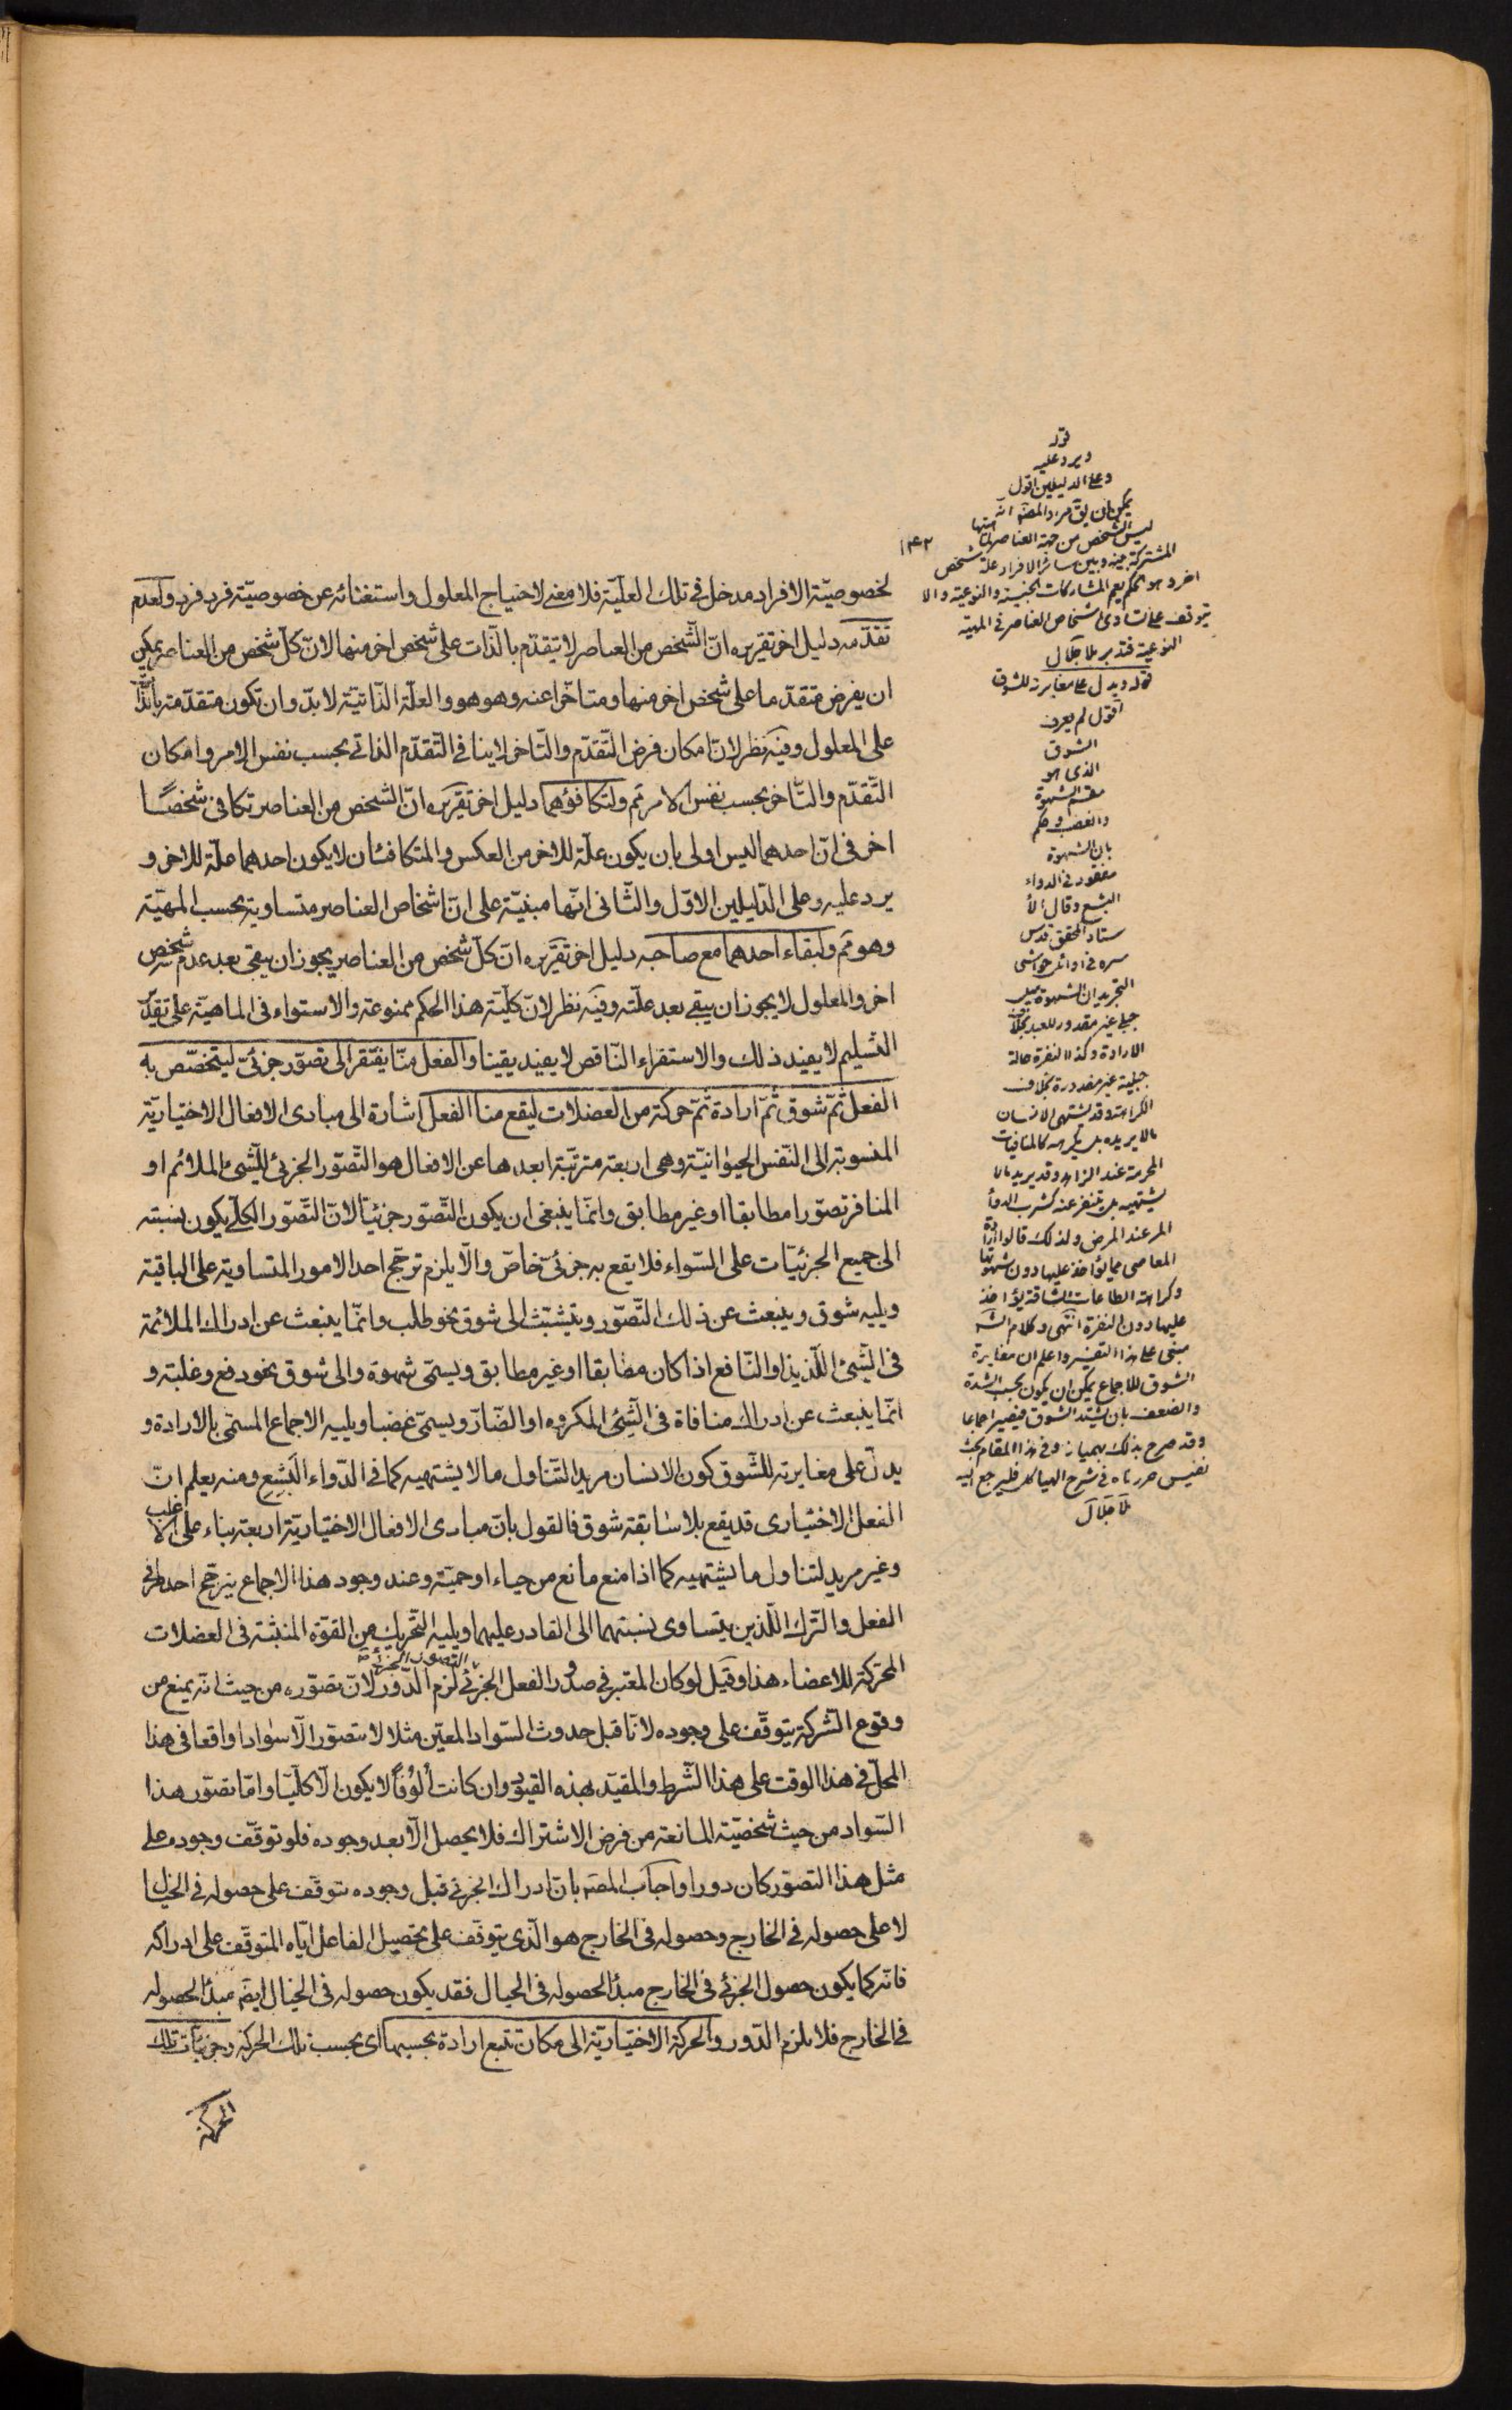 لخصوصيّة الافراد مدخل فى تلك العلّيّة فلا معنى لاحتياج المعلول واستغنائه عن خصوصيّة فرد فرد ولعدم
تقدّمه دليل اخر تقريره انّ الشّخص من العناصر لا يتقدّم بالذّات على شخص اخر منها لانّ كلّ شخص من العناصر يمكن
ان يفرض متقدّما على شخص اخر منها ومتاخّرا عنه وهو هو والعلّة الذّاتيّة لا بدّ وان تكون متقدّمة بالذّات
على المعلول وفيه نظر لانّ امكان فرض التّقدّم والتّاخر لا ينافى التّقدّم الذاتى بحسب نفس الامر وامكان
التّقدّم والتّاخر بحسب نفس الامر مم ولتكافؤهما دليل اخر تقريره انّ الشخص من العناصر تكافئ شخصًا
اخر فى انّ احدهما ليس اولى بان يكون علّة للاخر من العكس والمتكافئان لا يكون احدهما علّة للاخر و
يرد عليه وعلى الدّليلين الاوّل والثّانى انّها مبنيّة على انّ اشخاص العناصر متساوية بحسب المهيّة
وهو مم ولبقاء احدهما مع صاحبه دليل اخر تقريره انّ كلّ شخص من العناصر يجوز ان يبقى بعد عدم شخص
اخر والمعلول لا يجوز ان يبقى بعد علّته وفيه نظر لانّ كليّة هذا الحكم ممنوعة والاستواء فى الماهيّة على تقدير
التسليم لا يفيد ذلك والاستقراء النّاقص لا يفيد يقينا والفعل منّا يفتقر الى تصوّر جزئىّ ليتخصّص به
الفعل ثمّ شوق ثمّ ارادة ثمّ حركة من العضلات ليقع منا الفعل اشارة الى مبادى الافعال الاختياريّة
المنسوبة الى النّفس الحيوانيّة وهى اربعة مترتّبة ابعدها عن الافعال هو التّصوّر الجزئى للشّىء الملائم او
المنافر تصوّرا مطابقا او غير مطابق وانّما ينبغى ان يكون التّصوّر جزئيّا لانّ التّصوّر الكلّى يكون نسبته
الى جميع الجزئيّات على السّواء فلا يقع به جزئىّ خاصّ والّا يلزم ترجّح احد الامور المتساوية على الباقية
ويليه شوق وينبعث عن ذلك التّصوّر ويتشعّب الى شوق نحو طلب وانّما ينبعث عن ادراك الملائمة
فى الشّىء اللّذيذ او النّافع اذا كان مطابقا او غير مطابق ويسمّى شهوة والى شوق نحو دفع وغلبة و
انّما ينبعث عن ادراك منافاة فى الشّىء المكروه او الضّارّ ويسمّى غضبا ويليه الاجماع المسمّى بالارادة و
يدلّ على مغايرته للشّوق كون الانسان مريد التّناول ما لا يشتهيه كما فى الدّواء البَشِع ومنه يعلم انّ
الفعل الاختيارى قد يقع بلا سابقة شوق فالقول بانّ مبادى الافعال الاختياريّة اربعة بناء على الاغلب
وغير مريد لتناول ما يشتهيه كما اذا منع مانع من حياء او حميّة وعند وجود هذا الاجماع يترجّح احد طرفى
الفعل والتّرك اللّذين يتساوى نسبتهما الى القادر عليهما ويليه التّحريك من القوّة المنبثّة فى العضلات
المحرّكة للاعضاء هذا وقيل لو كان المعتبر فى صدور الفعل الجزئى التصور الجزئى لزم الدّور لانّ تصوّره من حيث انّه يمنع من
وقوع الشّركة يتوقّف على وجوده لانّا قبل حدوث السّواد المعيّن مثلا لا نتصوّر الّا سوادا واقعا فى هذا
المحلّ فى هذا الوقت على هذا الشّرط والمقيّد بهذه القيود وان كانت أُلُوفًا لا يكون الّا كلّيّا وامّا تصوّر هذا
السّواد من حيث شخصيّة المانعة من فرض الاشتراك فلا يحصل الّا بعد وجوده فلو توقّف وجوده على
مثل هذا التصوّر كان دورا واجاب المصه بانّ ادراك الجزئى قبل وجوده يتوقّف على حصوله فى الخيال
لا على حصوله فى الخارج وحصوله فى الخارج هو الّذى يتوقّف على تحصيل الفاعل ايّاه المتوقّف على ادراكه
فانّه كما يكون حصول الجزئى فى الخارج مبدأ لحصوله فى الخيال فقد يكون حصوله فى الخيال ايضه مبدأ لحصوله
فى الخارج فلا يلزم الدّور والحركة الاختياريّة الى مكان تتبع ارادة بحسبها اى بحسب تلك الحركة وجزئيّات تلك
الحركة
١٤٢
قوله
ويرد عليه
وعلى الدليلين اقول
يمكن ان يق مراد المصنه انه
ليس الشخص من جهة العناصر
المشتركة بينه وبين سائر الافراد علة شخص
اخر وهو حكم يعم المشاركات الجنسية والنوعية والا
يتوقف على تساوى اشخاص العناصر فى المهية
النوعية فتدبر ملا جلال
قوله ويدل على مغايرته للشوق
اقول لم يعرف
الشوق
الذى هو
مقسم الشهوة
والغضب وحكم
بان الشهوة
مفقود فى الدواء
البشع وقال الأ
ستاد المحقق قدس
سره فى اوائل حواشى
التجريد ان الشهوة ميل
جبلى غير مقدور للعبد بخلاف
الارادة وكذا النفرة حالة
جبلية غير مقدورة بخلاف
الكراهة وقد يشتهى الانسان
ما لا يريده بل يكرهه كالمنافيات
المحرمة عند الزاهد وقد يريد ما لا
يشتهيه بل يتنفر عنه كشرب الدواء
المر عند المرض ولذلك قالوا ارادة
المعاصى مما يؤاخذ عليها دون شهوتها
وكراهة الطاعات الشاقة يؤاخذ
عليها دون النفرة انتهى وكلام الشه
مبنى على هذا التفسير واعلم ان مغايرة
الشوق للاجماع يمكن ان يكون بحسب الشدة
والضعف بان يشتد الشوق فيصير اجماعا
وقد صرح بذلك بهمنيار وفى هذا المقام بحث
نفيس حررناه فى شرح الهياكل فليرجع اليه
ملا جلال